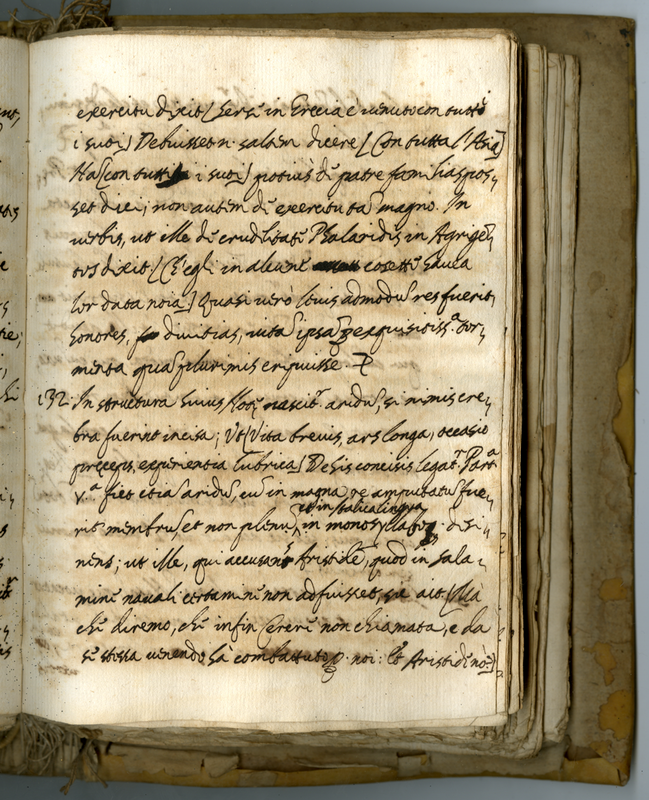 exercitu dixit [Serse in Grecia è venuto con tutti
i suoi] Debuisset n. saltem dicere [Con tutta l'Asia]
Na[con tutti i suoi] potius de patre familias pos,
set dici; non autem de exercitu ta magno. In
verbis, ut ille de crudelitate Phalaridis in Agrige,
tos dixit [Ch'egli in alcune cosette havea
lor data noia] Quasi vero levis admodu res fuerit,
honores, divitias, vita ipsa exquisitiss.a tor,
menta quaplurimis eripuisse.
132. In structura huius nascit. aridus, si nimis cre,
bra fuerint incisa; Ut [Vita brevis, ars longa, occasio
preceps, experientia lubrica] De his concisis legat. Part.a
V.a fiet etia aridus, cu in magna re amputatu fue,
et in Italica lingua
rit membru, et non plenu, in monosyllabu desi,
nens; ut ille, qui accusans Aristide, quod in Sala,
mine navali certamine non adfuisset, sic ait [Ma
che diremo, che infin Cerere non chiamata, e da
se stessa venendo hà combattuto p. noi: et Aristide nò.]